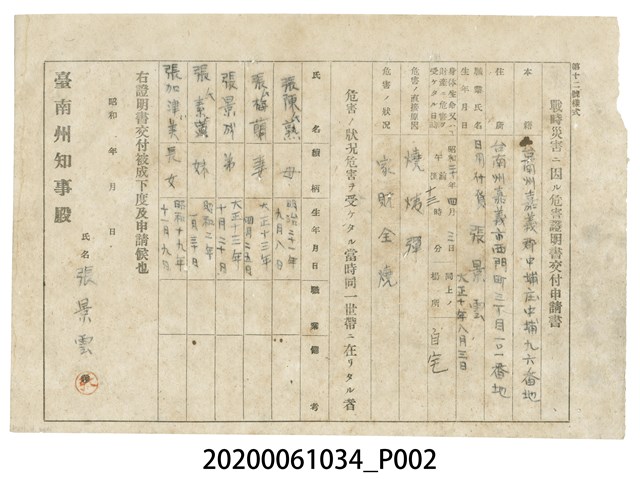 第十二號樣式
戰時災害ニ因ル危害證明書交付申請書
本籍 臺南州嘉義郡中埔庄中埔九六番地
住所 台南州嘉義市西門町三丁目一〇一番地
職業氏名 日用什貨 張景雲
生年月日 大正十年八月三日
身体生命又ハ財產ニ危害ヲ受ケタル日時 昭和二十年四月三日 午前 午後 十二時 分 同上ノ場所 自宅
危害ノ直接原因 燒夷彈
危害ノ狀況 家貯全燒
危害ノ狀況危害ヲ受ケタル當時同一世帶ニ在リタル者
氏名 續柄 生年月日 職業 備考
張陳 母 明治二十一年九月八日
張梅蘭 妻 大正十三年四月二五日
張景成 弟 大正十二年十月二日
張素 妹 昭和二年一月三十日
張加津美 長女 昭和十九年十一月九日
右證明書交付被成下度及申請候也
昭和 年 月 日
氏名 張景雲
臺南州知事殿
20200061034_P002